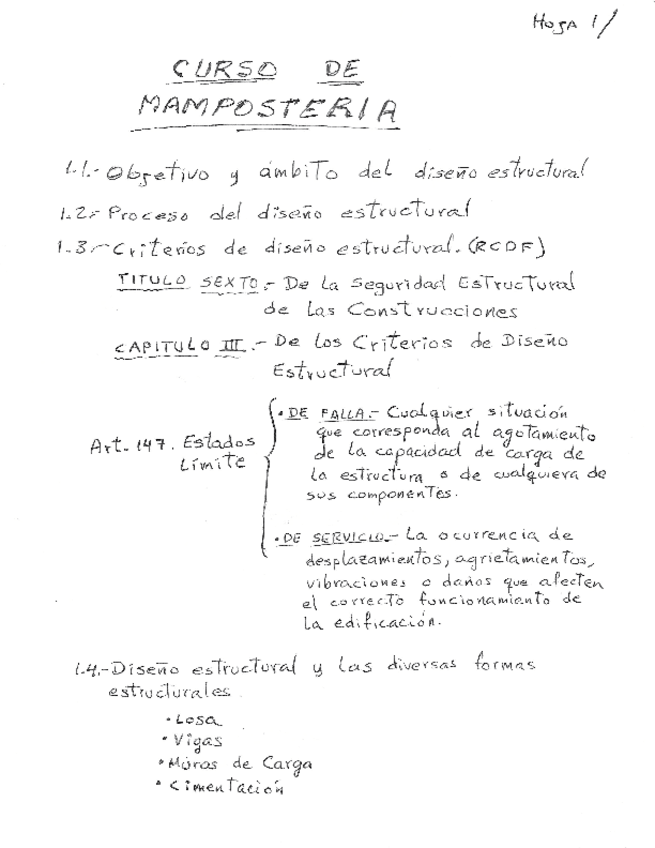 Hoja 1/
CURSO DE
MAMPOSTERIA
1.1.- Objetivo y ámbito del diseño estructural
1.2.- Proceso del diseño estructural
1.3.- Criterios de diseño estructural. (RCDF)
TITULO SEXTO.- De la Seguridad Estructural
de las Construcciones
CAPITULO III.- De los Criterios de Diseño
Estructural
Art. 147. Estados
Límite
• DE FALLA.- Cualquier situación
que corresponda al agotamiento
de la capacidad de carga de
la estructura o de cualquiera de
sus componentes.
• DE SERVICIO.- La ocurrencia de
desplazamientos, agrietamientos,
vibraciones o daños que afecten
el correcto funcionamiento de
la edificación.
1.4.- Diseño estructural y las diversas formas
estructurales
• Losa
• Vigas
• Muros de Carga
• Cimentación